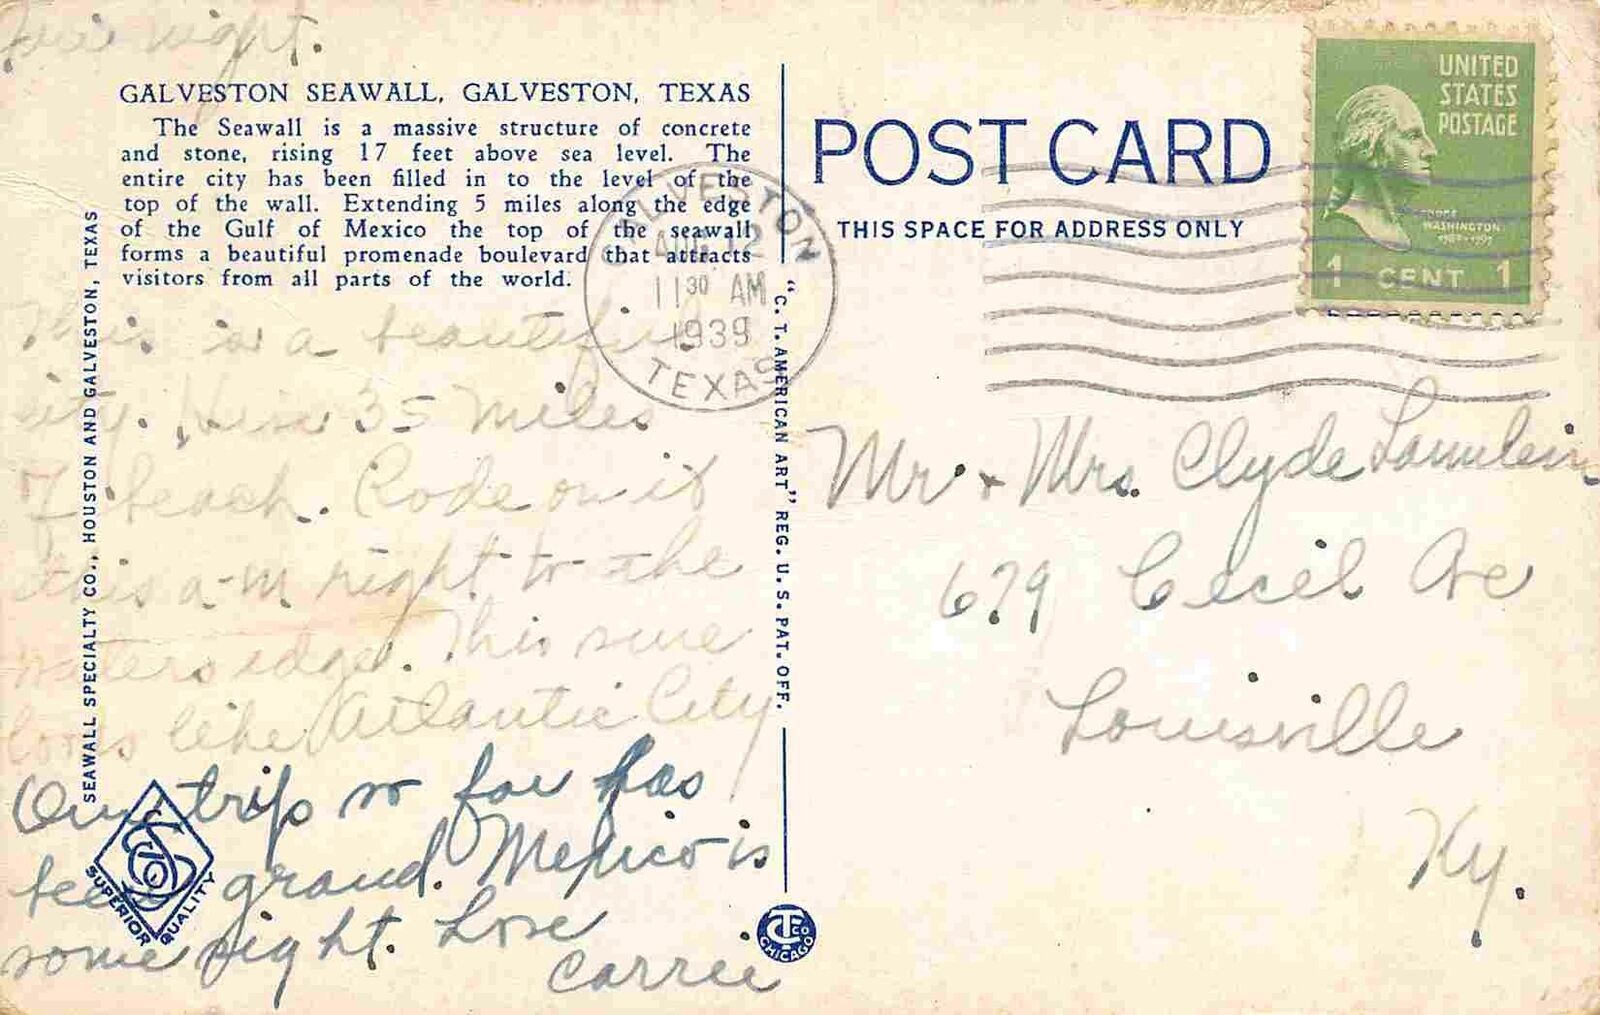 night.
GALVESTON SEAWALL, GALVESTON, TEXAS
The Seawall is a massive structure of concrete
and stone, rising 17 feet above sea level. The
entire city has been filled in to the level of the
top of the wall. Extending 5 miles along the edge
of the Gulf of Mexico the top of the seawall
forms a beautiful promenade boulevard that attracts
visitors from all parts of the world.
This is a beautiful
city. 35 miles
of beach. Rode on it
this a-m right to the
waters edge. This sure
looks like Atlantic City
Our trip so far has
been grand. Mexico is
some sight. Love
Carrie
SEAWALL SPECIALTY CO., HOUSTON AND GALVESTON, TEXAS
SUPERIOR QUALITY
GALVESTON
AUG 12
11 30 AM
1939
TEXAS
"C. T. AMERICAN ART" REG. U. S. PAT. OFF.
CT CO CHICAGO
POST CARD
THIS SPACE FOR ADDRESS ONLY
UNITED
STATES
POSTAGE
GEORGE
WASHINGTON
1789-1797
1 CENT 1
Mr. + Mrs. Clyde
679 Cecil Ave
Louisville
Ky.